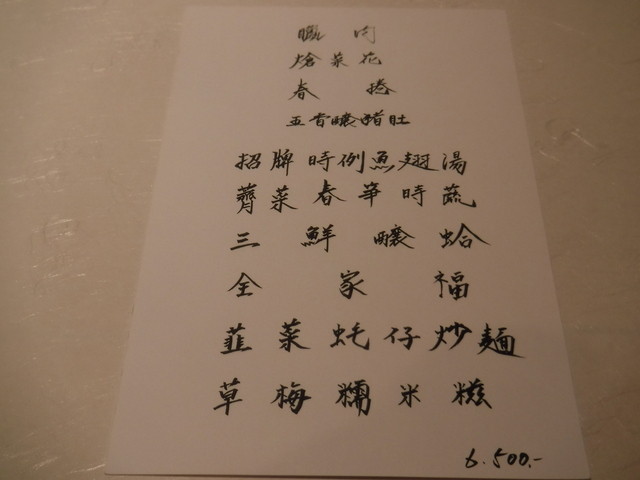 肉
熗菜花
春捲
五香釀豬肚
招牌時例魚翅湯
薺菜春笋時蔬
三鮮釀蛤
全家福
韮菜蚝仔炒麵
草莓糯米糍
6.500.-